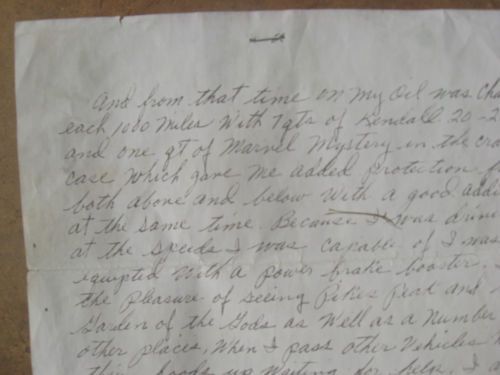 And from that time on my oil was cha
each 1000 miles with 7 qts of Kendall 20-2
and one qt of Marvel Mystery in the cra
case which gave me added protection f
both above and below with a good addi
at the same time. Because I was drivi
at the speeds I was capable of I was
equipted with a power brake booster.
the pleasure of seeing Pikes Peak and
Garden of the Gods as well as a number
other places. When I pass other vehicles
their hoods up waiting for help. I